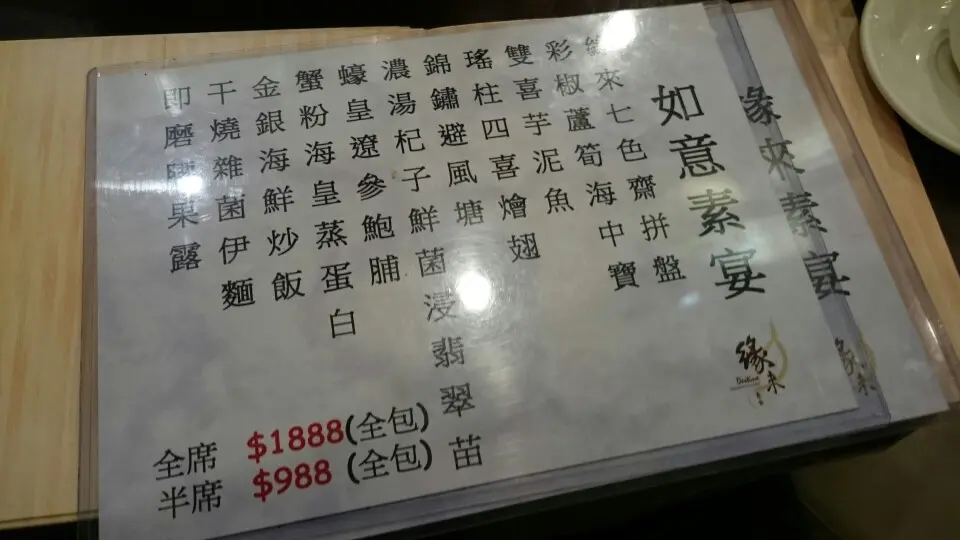 緣來素宴
如意素宴
緣來七色齋拼盤
彩椒蘆筍海中寶
雙喜芋泥魚
瑤柱四喜燴翅
錦鏽避風塘
濃湯杞子鮮菌浸翡翠苗
蠔皇遼參鮑脯
蟹粉海皇蒸蛋白
金銀海鮮炒飯
干燒雜菌伊麵
即磨果露
全席 $1888(全包)
半席 $988 (全包)
緣來
Destine
緣來